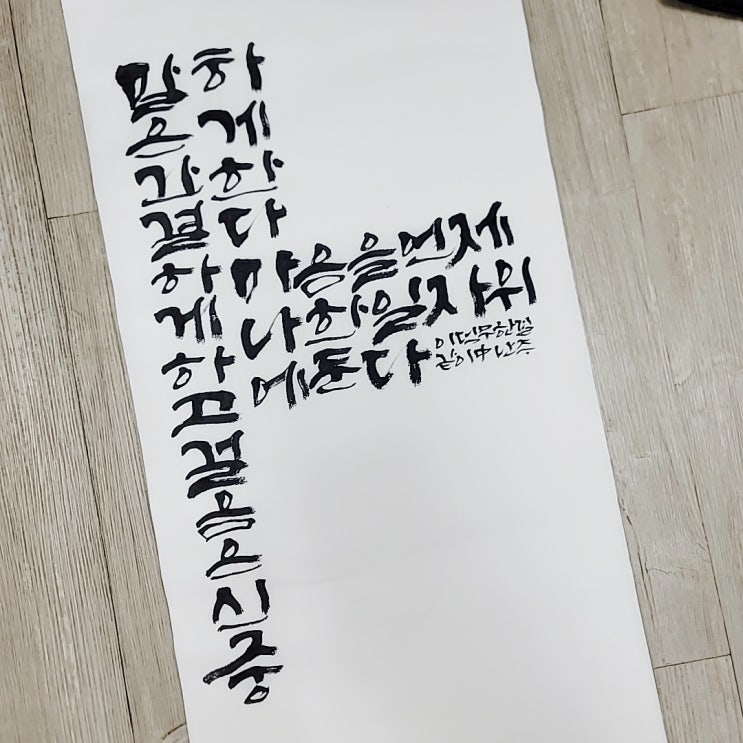 말은간결하게하고걸음은신중
하게한다
마음을언제
나한일자위
에둔다
이덕무한결
같이中 난주